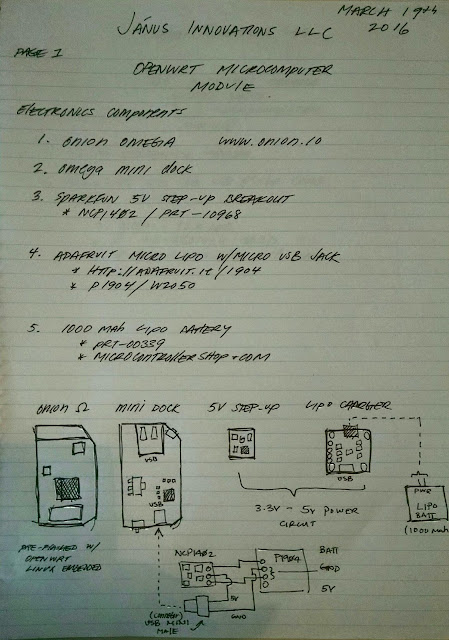 MARCH 19th
2016
JÁNUS INNOVATIONS LLC
PAGE 1
OPENWRT MICROCOMPUTER
MODULE
ELECTRONICS COMPONENTS
1. ONION OMEGA www.onion.io
2. OMEGA MINI DOCK
3. SPARKFUN 5V STEP-UP BREAKOUT
* NCP1402 / PRT-10968
4. ADAFRUIT MICRO LIPO W/MICRO USB JACK
* HTTP://ADAFRUIT.IT/1904
* P1904/W2050
5. 1000 MAH LIPO BATTERY
* PRT-00339
* MICROCONTROLLERSHOP.COM
ONION Ω MINI DOCK 5V STEP-UP LIPO CHARGER
USB
USB
USB
PWR
LIPO
BATT
(1000 MAH)
3.3V - 5V POWER
CIRCUIT
PRE-FLASHED W/
OPENWRT
LINUX EMBEDDED
NCP1402 P1904 BATT
GND
5V
5V
GND
USB MINI
MALE